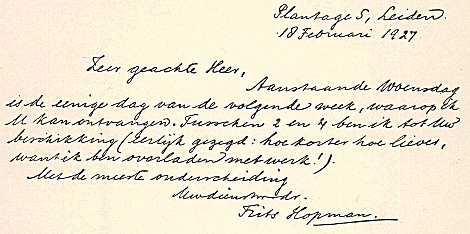 Plantage 5, Leiden.
18 Februari 1927
Zeer geachte Heer,
Aanstaande Woensdag
is de eenige dag van de volgende week, waarop ik
U kan ontvangen. Tusschen 2 en 4 ben ik tot Uw
beschikking (eerlijk gezegd: hoe korter hoe liever,
want ik ben overladen met werk!).
Met de meeste onderscheiding
Uw dienstw. dr.
Frits Hopman.